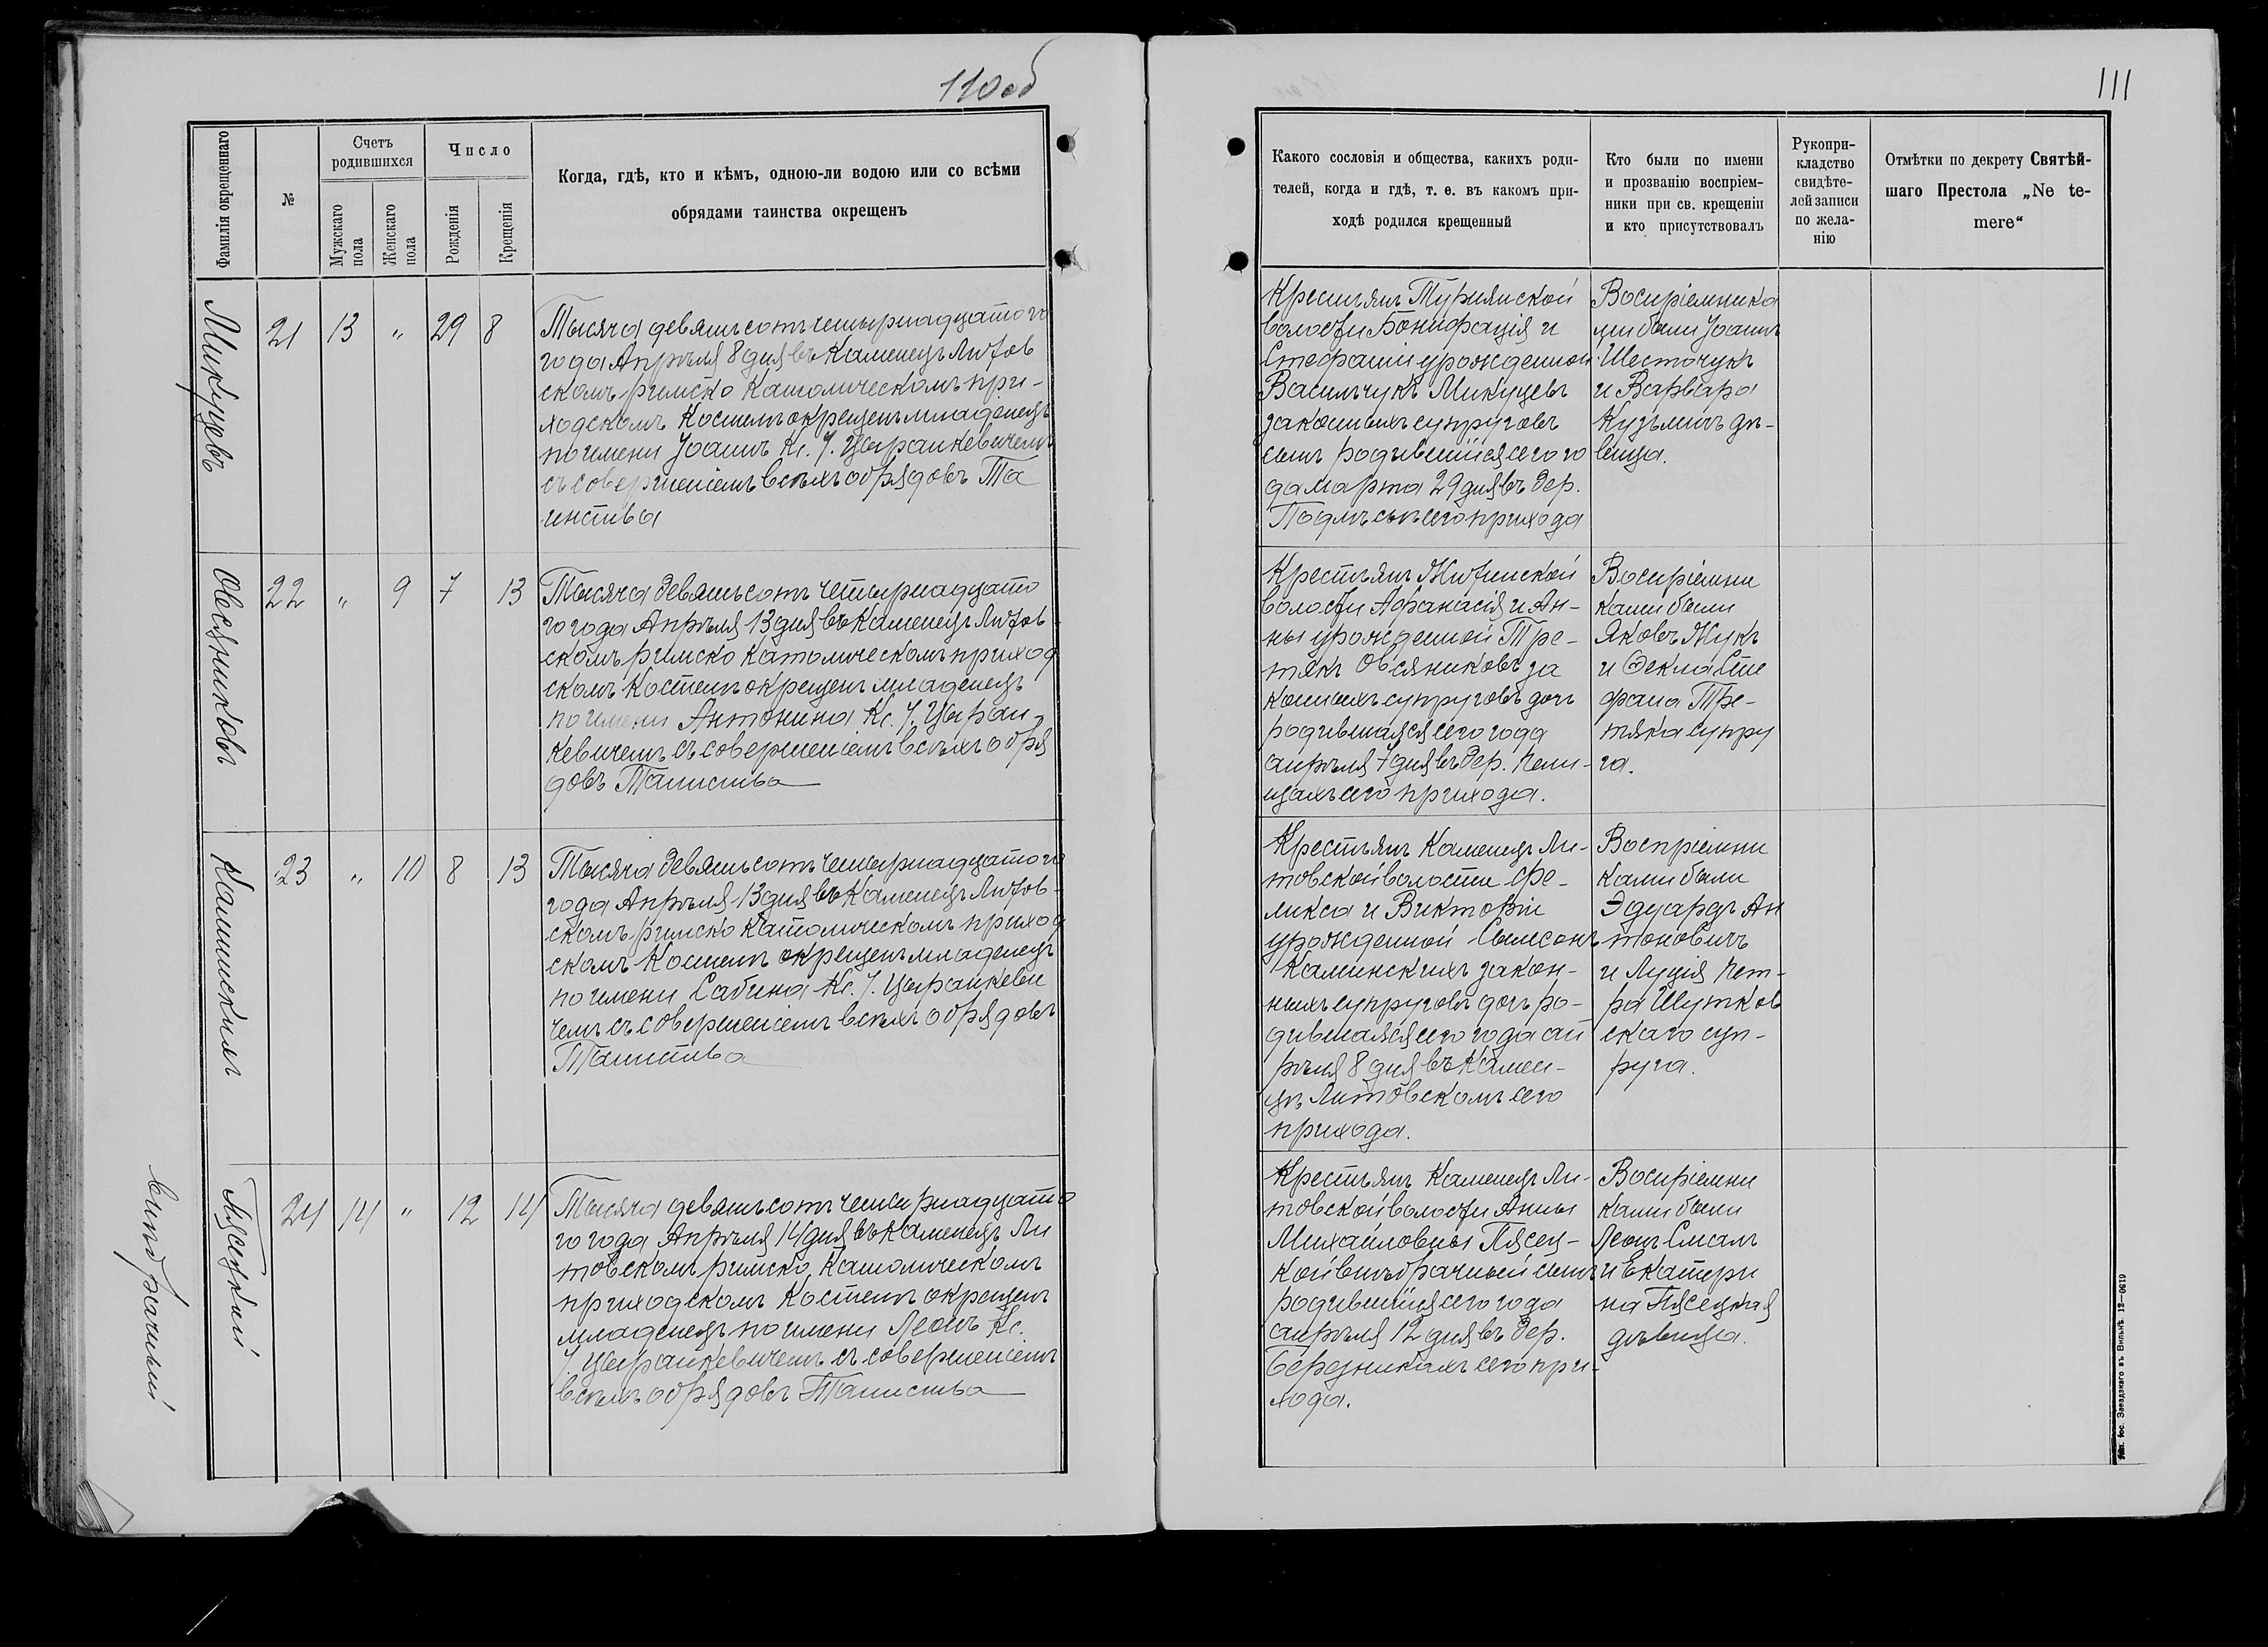 110 об
Фамилія окрещеннаго
№
Счетъ
родившихся
Мужскаго
пола
Женскаго
пола
Число
Рожденія
Крещенія
Когда, гдѣ, кто и кѣмъ, одною-ли водою или со всѣми
обрядами таинства окрещенъ
Микуцевъ
21 13 „ 29 8
Тысяча девятьсотъ четырнадцатого
года Апрѣля 8 дня въ Каменецъ Литов
скомъ римско Католическомъ при-
ходскомъ Костелѣ окрещенъ младенецъ
по имени Іоаннъ Кс. І. Цыранкевичемъ
съ совершеніемъ всѣхъ обрядовъ Та
инства
Овсяниковъ
22 „ 9 7 13
Тысяча девятьсотъ четырнадцато
го года Апрѣля 13 дня въ Каменецъ Литов-
скомъ римско Католическомъ приход
скомъ Костелѣ окрещенъ младенецъ
по имени Антонина Кс. І. Цыран-
кевичемъ съ совершеніемъ всѣхъ обря
довъ Таинства
Каминскихъ
23 „ 10 8 13
Тысяча девятьсотъ четырнадцатого
года Апрѣля 13 дня въ Каменецъ Литов-
скомъ римско Католическомъ приход
скомъ Костелѣ окрещенъ младенецъ
по имени Сабина Кс. І. Цыранкеви
чемъ съ совершеніемъ всѣхъ обрядовъ
Таинства
Пясецкий
внѣбрачный
24 14 „ 12 14
Тысяча девятьсотъ четырнадцато
го года Апрѣля 14 дня въ Каменецъ Ли
товскомъ римско Католическомъ
приходскомъ Костелѣ окрещенъ
младенецъ по имени Леонъ Кс.
І. Цыранкевичемъ съ совершеніемъ
всѣхъ обрядовъ Таинства
111
Какого сословія и общества, какихъ роди-
телей, когда и гдѣ, т. е. въ какомъ при-
ходѣ родился крещенный
Кто были по имени
и прозванію воспріем-
ники при св. крещеніи
и кто присутствовалъ
Рукопри-
кладство
свидѣте-
лей записи
по жела-
нію
Отмѣтки по декрету Святѣй-
шаго Престола „Ne te-
mere“
Крестьянъ Турнянской
волости Бонифація и
Стефаніи урожденной
Васильчукъ Микуцевъ
законныхъ супруговъ
сынъ родившійся сего го
да марта 29 дня въ дер.
Подлѣсьѣ сего прихода
Воспріемника
ми были Іоаннъ
Шесточукъ
и Варвара
Кузьмичъ дѣ-
вица.
Крестьянъ Житинской
волости Афанасія и Ан-
ны урожденной Тре-
тякъ Овсяниковъ за
конныхъ супруговъ дочь
родившаяся сего года
апрѣля 7 дня въ дер. Пени-
цахъ сего прихода.
Воспріемни
ками были
Яковъ Жукъ
и Фекла Сте
фана Тре-
тяка супру
га.
Крестьянъ Каменецъ Ли-
товской волости Фе-
ликса и Викторіи
урожденной Самсонъ
Каминскихъ закон-
ныхъ супруговъ дочь ро-
дившаяся сего года ап
рѣля 8 дня въ Камен-
цѣ Литовскомъ сего
прихода.
Воспріемни
ками были
Эдуардъ Ан
тоновичъ
и Луція Пет-
ра Шутков
скаго суп-
руга.
Крестьянъ Каменецъ Ли-
товской волости Анны
Михайловны Пясец-
кой внѣбрачный сынъ
родившійся сего года
апрѣля 12 дня въ дер.
Березникахъ сего при-
хода.
Воспріемни
ками были
Леонъ Смаль
и Екатери
на Пясецкая
дѣвица.
Тип. Іос. Завадзкаго въ Вильнѣ. 12—0619